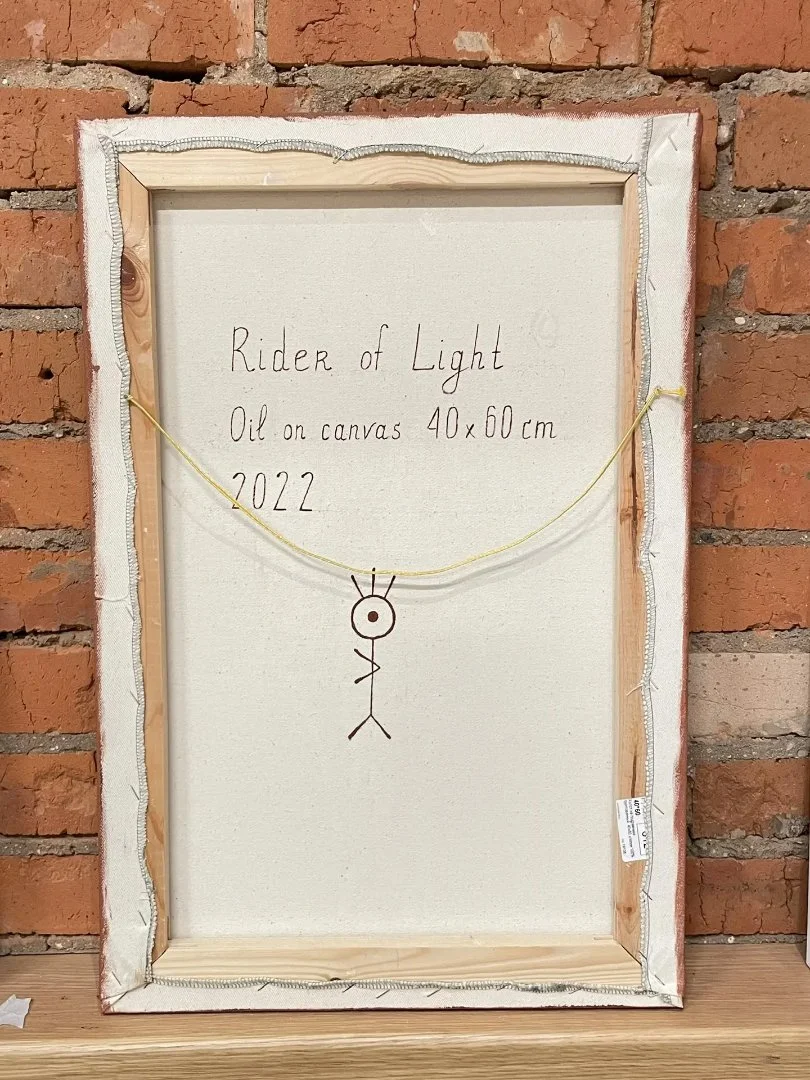 Rider of Light
Oil on canvas 40x60 cm
2022
40*60